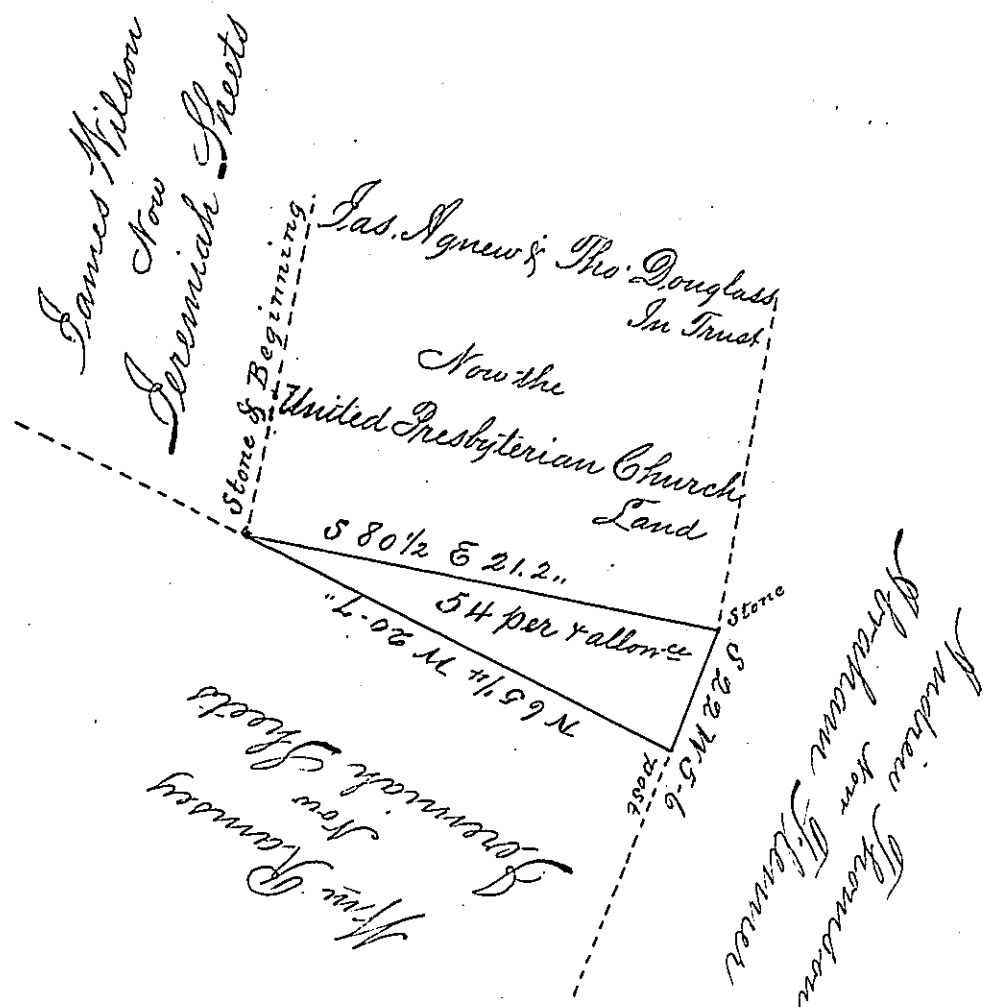 James Wilson
Now
Jeremiah Sheets
Stone & Beginning
Jas. Agnew & Tho. Douglass
In Trust
Now the
United Presbyterian Church
Land
S 80 1/2 E 21.2"
54 per & allow-ce
N 65 1/4 W 20-7"
Stone
S 22 W 5-6
Post
Wm Ramsey
Now
Jeremiah Sheets
Andrew Thomson
Now
Abraham